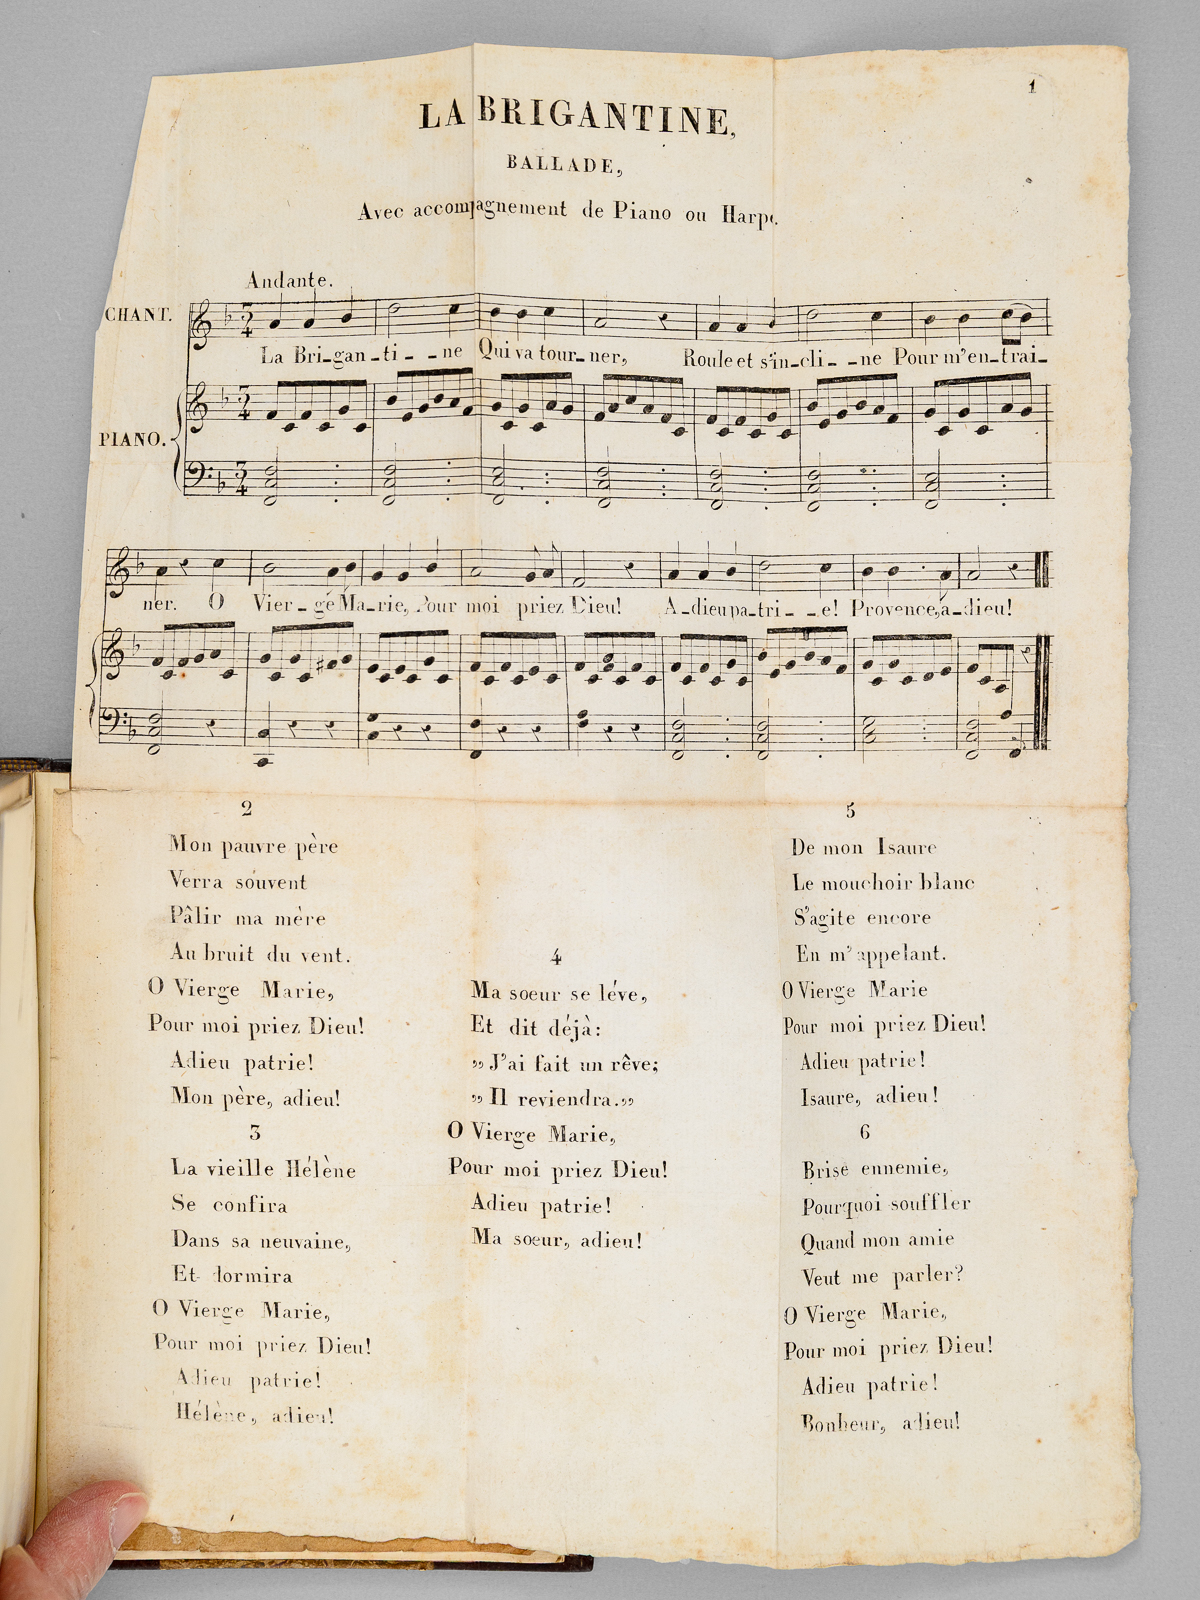 1
LA BRIGANTINE,
BALLADE,
Avec accompagnement de Piano ou Harpe.
Andante.
CHANT.
La Bri-gan-ti--ne Qui va tour-ner, Roule et s'in-cli--ne Pour m'en-trai-
PIANO.
ner. O Vier-ge Ma-rie, Pour moi priez Dieu! A-dieu pa-tri--e! Provence, a-dieu!
2
Mon pauvre père
Verra souvent
Pâlir ma mère
Au bruit du vent.
O Vierge Marie,
Pour moi priez Dieu!
Adieu patrie!
Mon père, adieu!
3
La vieille Hélène
Se confira
Dans sa neuvaine,
Et dormira
O Vierge Marie,
Pour moi priez Dieu!
Adieu patrie!
Hélène, adieu!
4
Ma soeur se léve,
Et dit déjà:
„J'ai fait un rêve;
„Il reviendra.„
O Vierge Marie,
Pour moi priez Dieu!
Adieu patrie!
Ma soeur, adieu!
5
De mon Isaure
Le mouchoir blanc
S'agite encore
En m'appelant.
O Vierge Marie
Pour moi priez Dieu!
Adieu patrie!
Isaure, adieu!
6
Brise ennemie,
Pourquoi souffler
Quand mon amie
Veut me parler?
O Vierge Marie,
Pour moi priez Dieu!
Adieu patrie!
Bonheur, adieu!